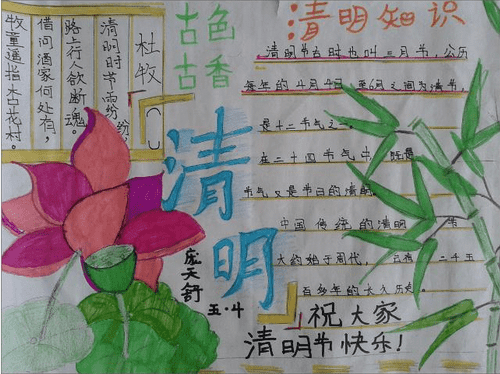 杜牧
清明时节雨纷纷
路上行人欲断魂。
借问酒家何处有,
牧童遥指杏花村。
古色
古香
清明
庞天舒
五·4
清明知识
清明节古时也叫三月节,公历
每年的4月4日至6日之间为清明节,
是十二节气之一。
在二十四节气中 既是
节气又是节日的清明
中国传统的清明 节
大约始于周代, 已有 二千五
百多年的 久历史。
祝大家
清明节快乐!